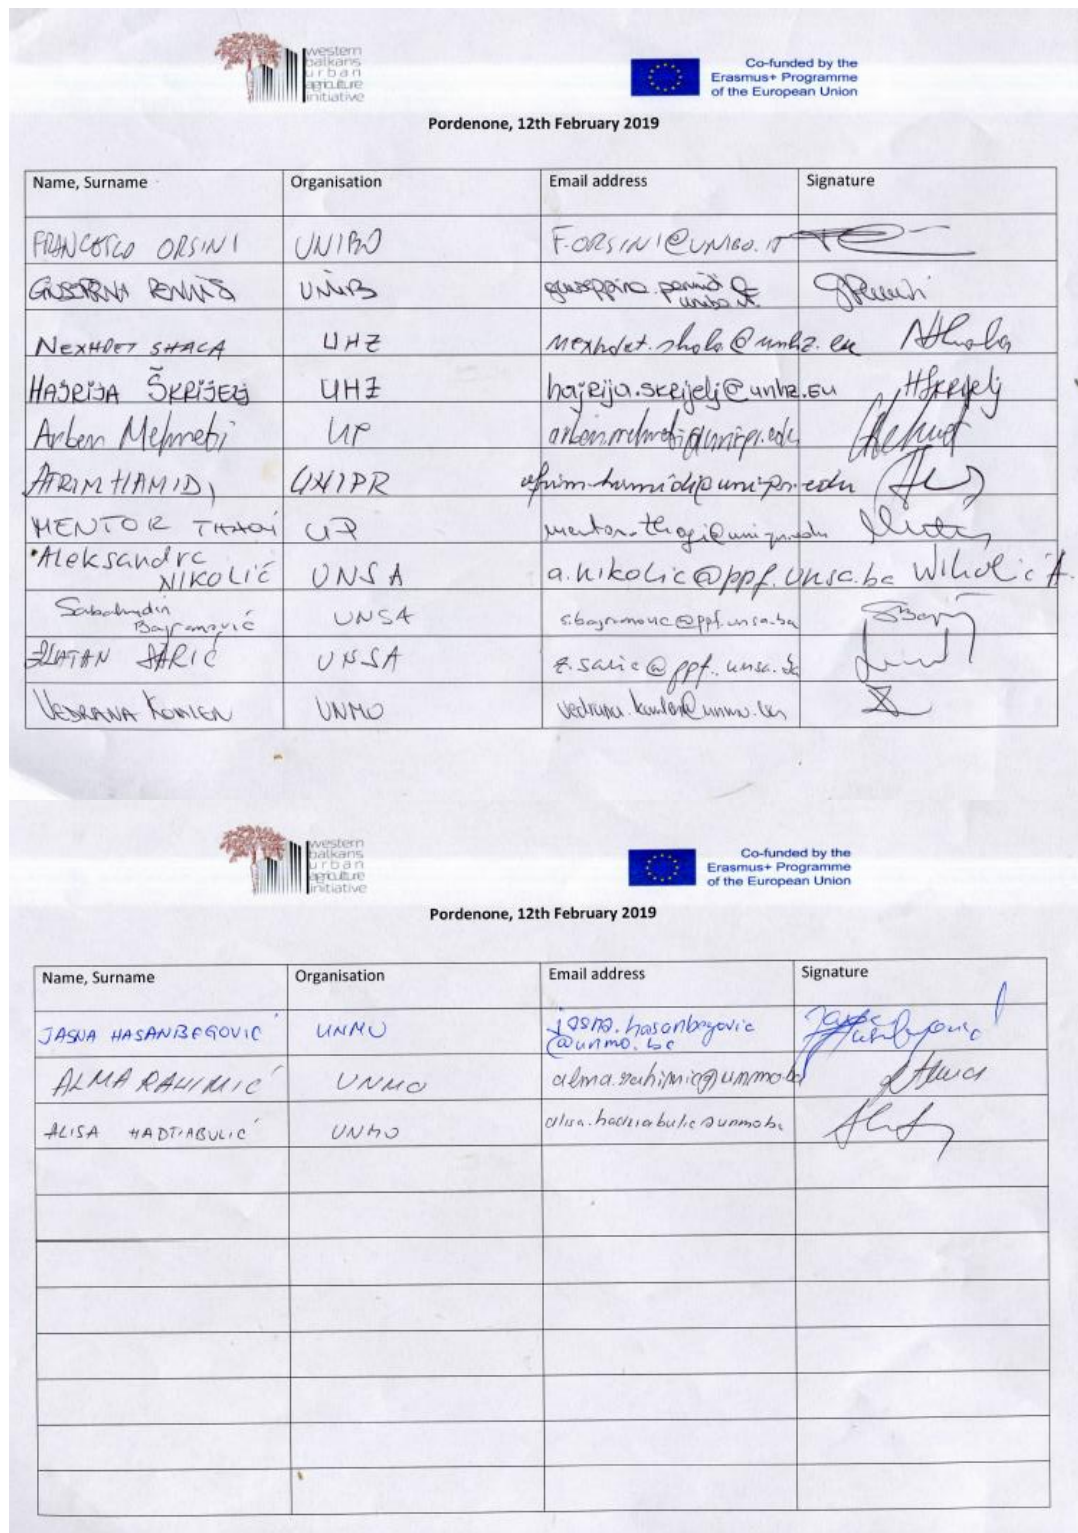 western
balkans
urban
agriculture
initiative
Co-funded by the
Erasmus+ Programme
of the European Union
Pordenone, 12th February 2019
Name, Surname Organisation Email address Signature
FRANCESCO ORSINI UNIBO F.ORSINI@UNIBO.IT
UNIB
NEXHDET SHALA UHZ nexhdet.shala@unhz.eu
HAJRIJA ŠKRIJELJ UHZ hajrija.skrijelj@unhz.eu HŠkrijelj
Arben Mehmeti UP arben.mehmeti@uni-pr.edu
AFRIM HAMIDI UNIPR afrim.hamidi@uni-pr.edu
MENTOR THAQI UP mentor.thaqi@uni-pr.edu
Aleksandra
NIKOLIĆ UNSA a.nikolic@ppf.unsa.ba Nikolić A.
Sabahudin
Bajramović UNSA s.bajramovic@ppf.unsa.ba
ZLATAN SARIĆ UNSA z.saric@ppf.unsa.ba
VEDRANA KOMLEN UNMO vedrana.komlen@unmo.ba
western
balkans
urban
agriculture
initiative
Co-funded by the
Erasmus+ Programme
of the European Union
Pordenone, 12th February 2019
Name, Surname Organisation Email address Signature
JASNA HASANBEGOVIĆ UNMO jasna.hasanbegovic
@unmo.ba
ALMA RAHIMIĆ UNMO alma.rahimic@unmo.ba
ALISA HADŽIABULIĆ UNMO alisa.hadziabulic@unmo.ba